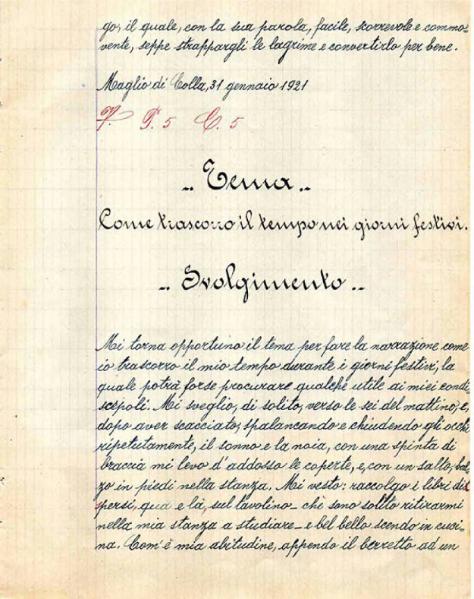 go, il quale, con la sua parola, facile, scorrevole e commo-
vente, seppe strappargli le lagrime e convertirlo per bene.
Maglio di Colla, 31 gennaio 1921
P. 5 C. 5
.. Tema ..
Come trascorro il tempo nei giorni festivi.
.. Svolgimento ..
Mi torna opportuno il tema per fare la narrazione come
io trascorro il mio tempo durante i giorni festivi, la
quale potrà forse procurare qualche utile ai miei condi
scepoli. Mi sveglio, di solito, verso le sei del mattino, e,
dopo aver scacciato, spalancando e chiudendo gli occhi
ripetutamente, il sonno e la noia, con una spinta di
braccia mi levo d'addosso le coperte, e, con un salto, bal
zo in piedi nella stanza. Mi vesto: raccolgo i libri dis
persi, qua e là, sul tavolino - chè sono solito ritirarmi
nella mia stanza a studiare - e bel bello scendo in cuci
na. Com'è mia abitudine, appendo il berretto ad un